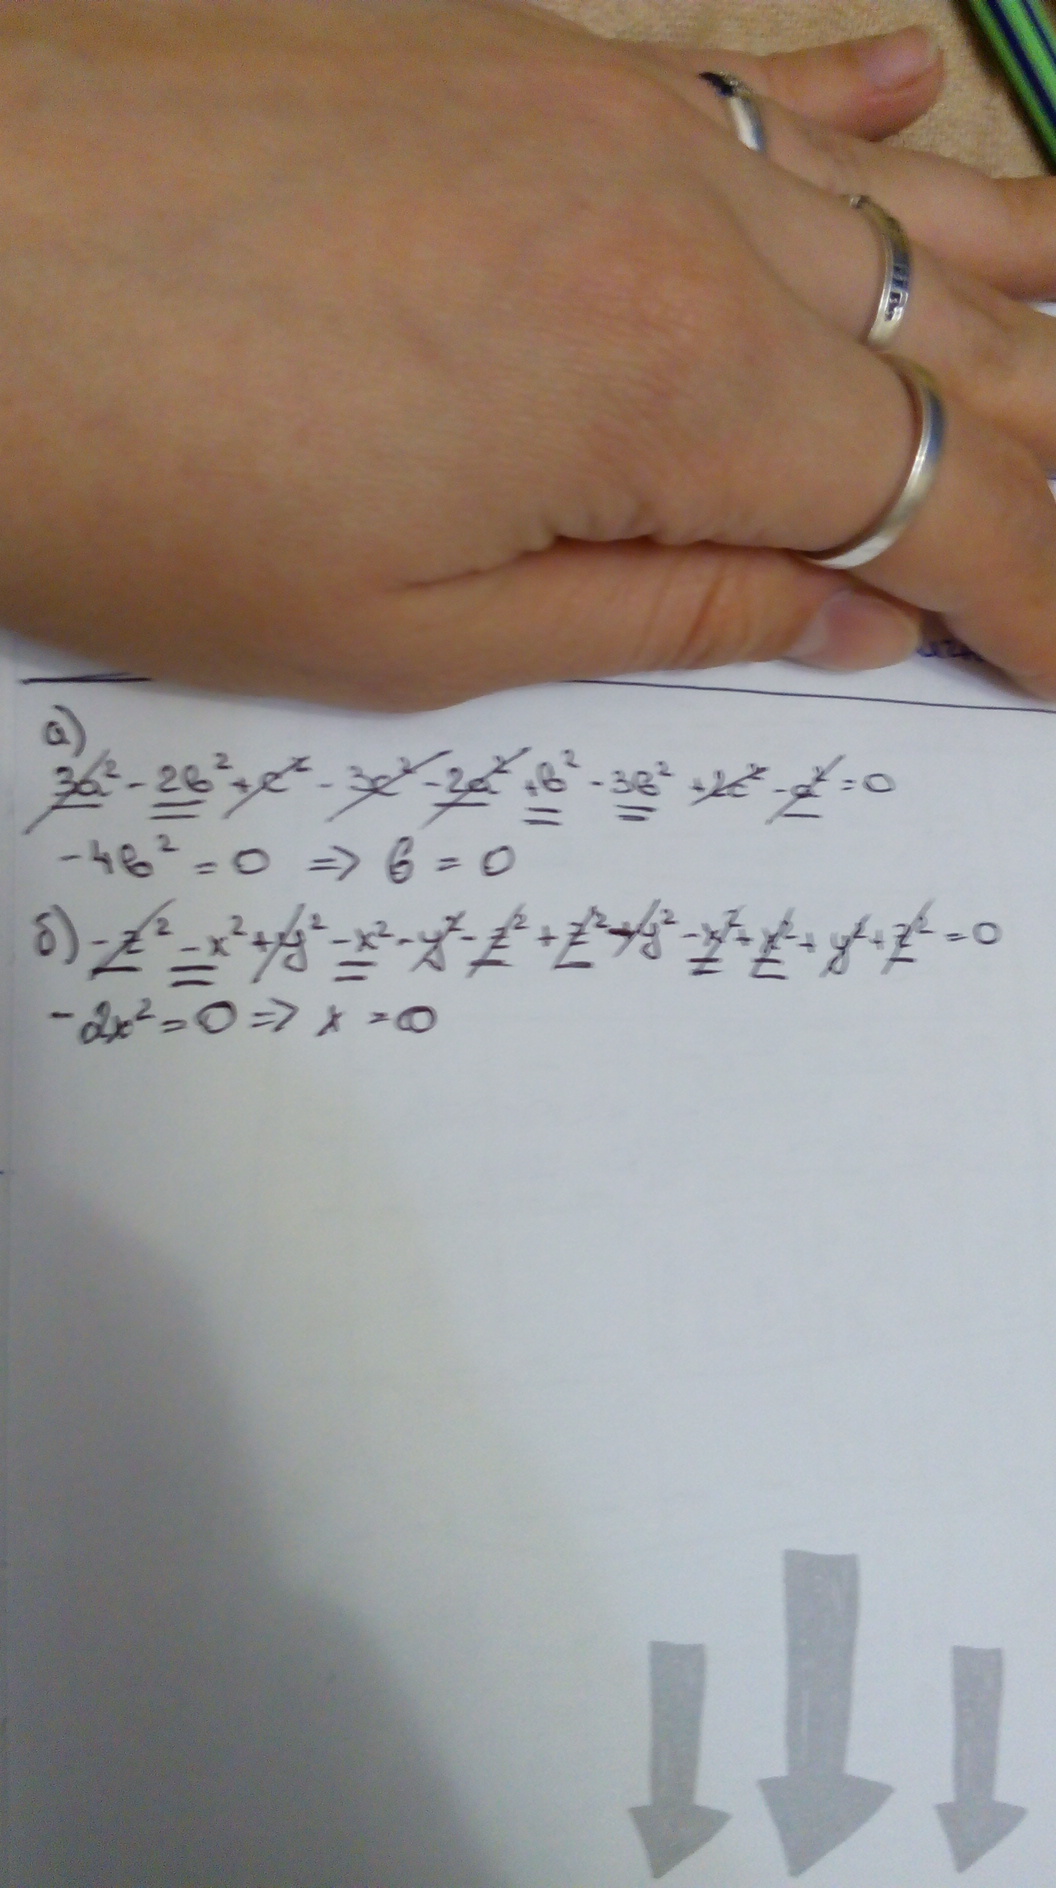 а)
3a² - 2в² + c² - 3c² - 2a² + в² - 3в² + 2c² - a² = 0
-4в² = 0 => в = 0
б) -z² - x² + y² - x² - y² - z² + z² - y² - x² + x² + y² + z² = 0
-2x² = 0 => x = 0